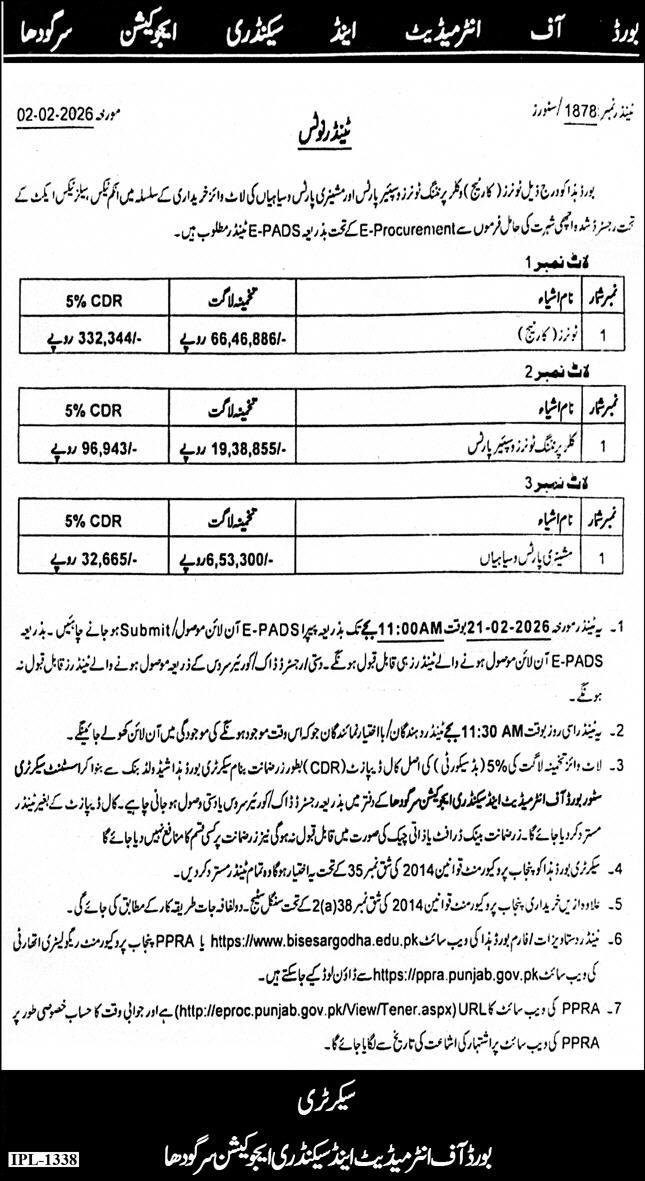 بورڈ آف انٹرمیڈیٹ اینڈ سیکنڈری ایجوکیشن سرگودھا
ٹینڈر نمبر: 1878/سٹورز
مورخہ 02-02-2026
ٹینڈر نوٹس
بورڈ ہذا کو درج ذیل ٹونرز (کارٹیج) و کلر پرنٹنگ ٹونرز و سپئیر پارٹس اور مشینری پارٹس و سیاہیاں کی لاٹ وائز خریداری کے سلسلہ میں انکم ٹیکس، سیلز ٹیکس ایکٹ کے
تحت رجسٹرڈ شدہ اچھی شہرت کی حامل فرموں سے E-Procurement کے تحت بذریعہ E-PADS ٹینڈر مطلوب ہیں۔
لاٹ نمبر 1
نمبر شمار نام اشیاء تخمینہ لاگت 5% CDR
1 ٹونرز (کارٹیج) 66,46,886/- روپے 332,344/- روپے
لاٹ نمبر 2
نمبر شمار نام اشیاء تخمینہ لاگت 5% CDR
1 کلر پرنٹنگ ٹونرز و سپئیر پارٹس 19,38,855/- روپے 96,943/- روپے
لاٹ نمبر 3
نمبر شمار نام اشیاء تخمینہ لاگت 5% CDR
1 مشینری پارٹس و سیاہیاں 6,53,300/- روپے 32,665/- روپے
1۔ یہ ٹینڈر مورخہ 21-02-2026 بوقت 11:00AM بجے تک بذریعہ پیپرا E-PADS آن لائن موصول/Submit ہو جانے چاہئیں۔ بذریعہ
E-PADS آن لائن موصول ہونے والے ٹینڈرز ہی قابل قبول ہونگے۔ دستی/رجسٹرڈ ڈاک/کورئیر سروس کے ذریعہ موصول ہونے والے ٹینڈرز قابل قبول نہ
ہونگے۔
2۔ یہ ٹینڈر اسی روز بوقت 11:30 AM بجے ٹینڈر دہندگان/با اختیار نمائندگان جو کہ اس وقت موجود ہونگے کی موجودگی میں آن لائن کھولے جائینگے۔
3۔ لاٹ وائز تخمینہ لاگت کی 5% (بڈ سیکورٹی) کی اصل کال ڈیپازٹ (CDR) بطور زر ضمانت بنام سیکرٹری بورڈ ہذا شیڈولڈ بنک سے بنوا کر اسسٹنٹ سیکرٹری
سٹور بورڈ آف انٹرمیڈیٹ اینڈ سیکنڈری ایجوکیشن سرگودھا کے دفتر میں بذریعہ رجسٹرڈ ڈاک/کورئیر سروس یا دستی وصول ہو جانی چاہیے۔ کال ڈیپازٹ کے بغیر ٹینڈر
مسترد کر دیا جائے گا۔ زر ضمانت بینک ڈرافٹ یا ذاتی چیک کی صورت میں قابل قبول نہ ہوگی نیز زر ضمانت پر کسی قسم کا منافع نہیں دیا جائے گا
4۔ سیکرٹری بورڈ ہذا کو پنجاب پروکیورمنٹ قوانین 2014 کی شق نمبر 35 کے تحت یہ اختیار ہوگا وہ تمام ٹینڈر مسترد کر دیں۔
5۔ علاوہ ازیں خریداری پنجاب پروکیورمنٹ قوانین 2014 کی شق نمبر 38(a)2 کے تحت سنگل سٹیج۔ دو لفافہ جات طریقہ کار کے مطابق کی جائے گی۔
6۔ ٹینڈر دستاویزات/فارم بورڈ ہذا کی ویب سائٹ https://www.bisesargodha.edu.pk یا PPRA پنجاب پروکیورمنٹ ریگولیٹری اتھارٹی
کی ویب سائٹ https://ppra.punjab.gov.pk سے ڈاؤن لوڈ کیے جا سکتے ہیں۔
7۔ PPRA کی ویب سائٹ کا URL (http://eproc.punjab.gov.pk/View/Tener.aspx) ہے اور جوابی وقت کا حساب خصوصی طور پر
PPRA کی ویب سائٹ پر اشتہار کی اشاعت کی تاریخ سے لگایا جائے گا۔
سیکرٹری
بورڈ آف انٹرمیڈیٹ اینڈ سیکنڈری ایجوکیشن سرگودھا
IPL-1338